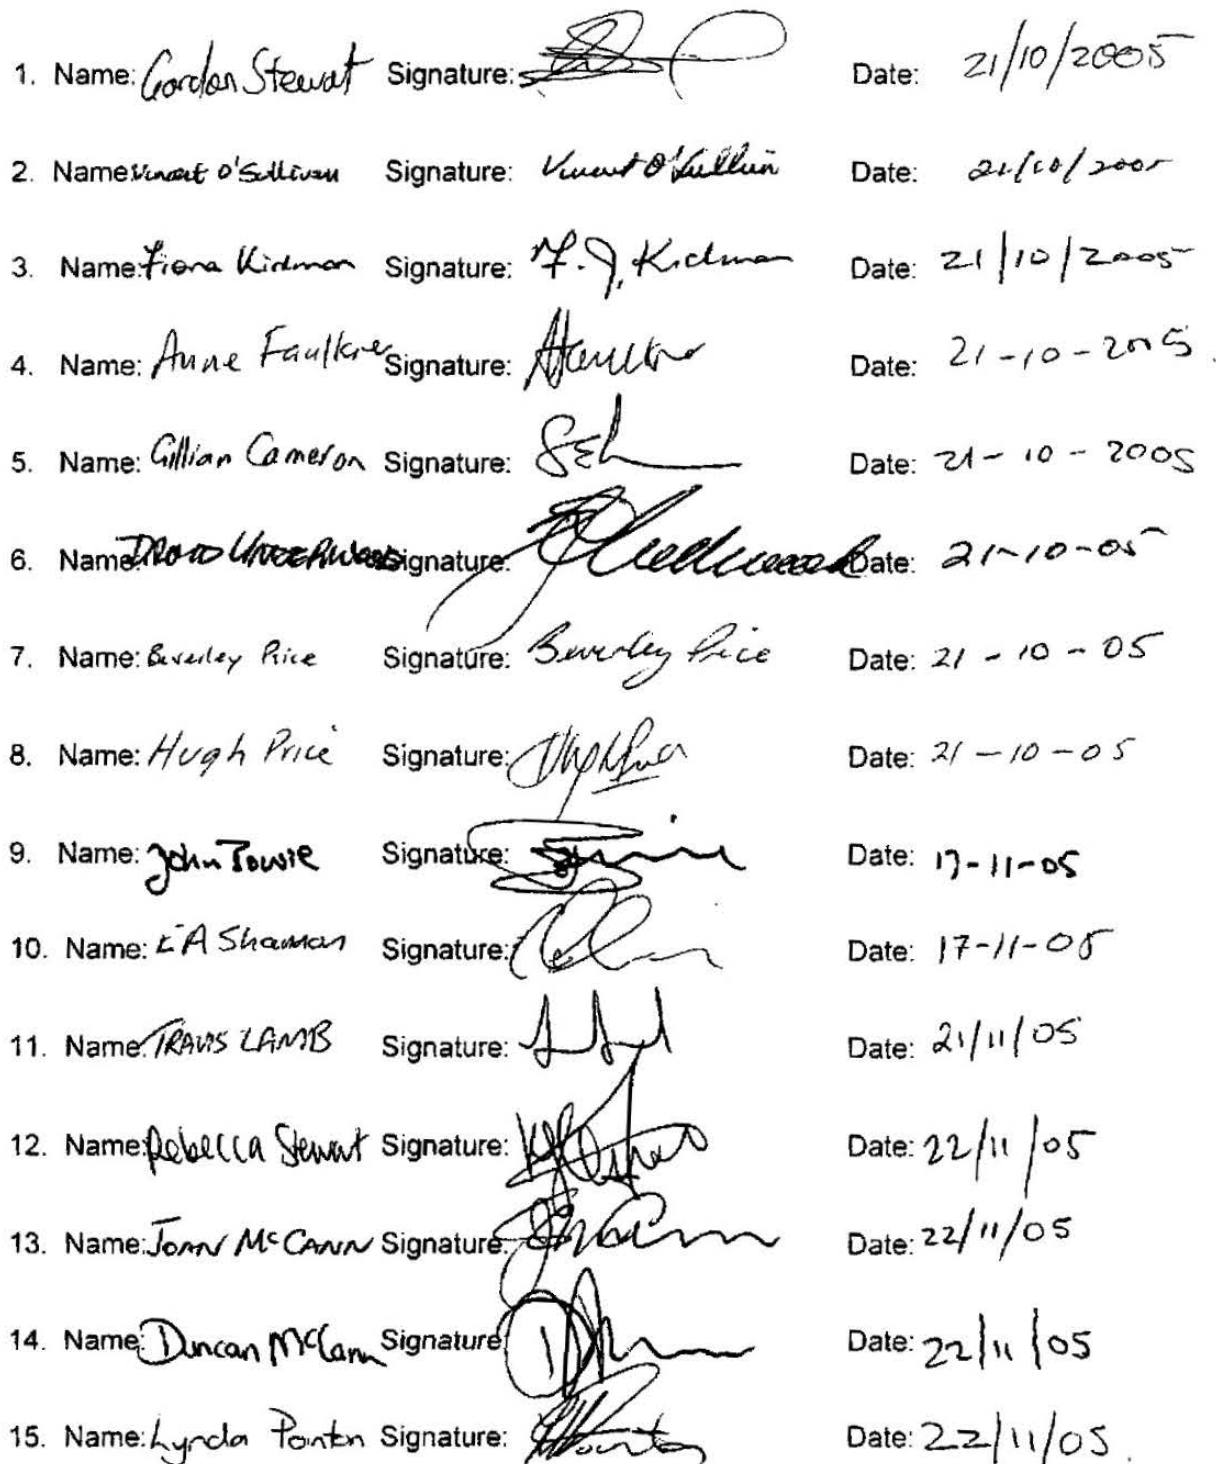 1. Name: Gordon Stewart Signature: Date: 21/10/2005
2. Name Vincent O'Sullivan Signature: Vincent O'Sullivan Date: 21/10/2005
3. Name: Fiona Kidman Signature: F. J. Kidman Date: 21/10/2005
4. Name: Anne Faulkner Signature: Date: 21-10-2005.
5. Name: Gillian Cameron Signature: Date: 21-10-2005
6. Name DAVID UNDERWOOD Signature: Date: 21-10-05
7. Name: Beverley Price Signature: Beverley Price Date: 21-10-05
8. Name: Hugh Price Signature: Date: 21-10-05
9. Name: John Towie Signature: Date: 17-11-05
10. Name: A Sharman Signature: Date: 17-11-05
11. Name: TRAVIS LAMB Signature: Date: 21/11/05
12. Name: Rebecca Stewart Signature: Date: 22/11/05
13. Name: McCANN Signature: Date: 22/11/05
14. Name: Duncan McCann Signature Date: 22/11/05
15. Name: Lynda Pointon Signature: Date: 22/11/05.